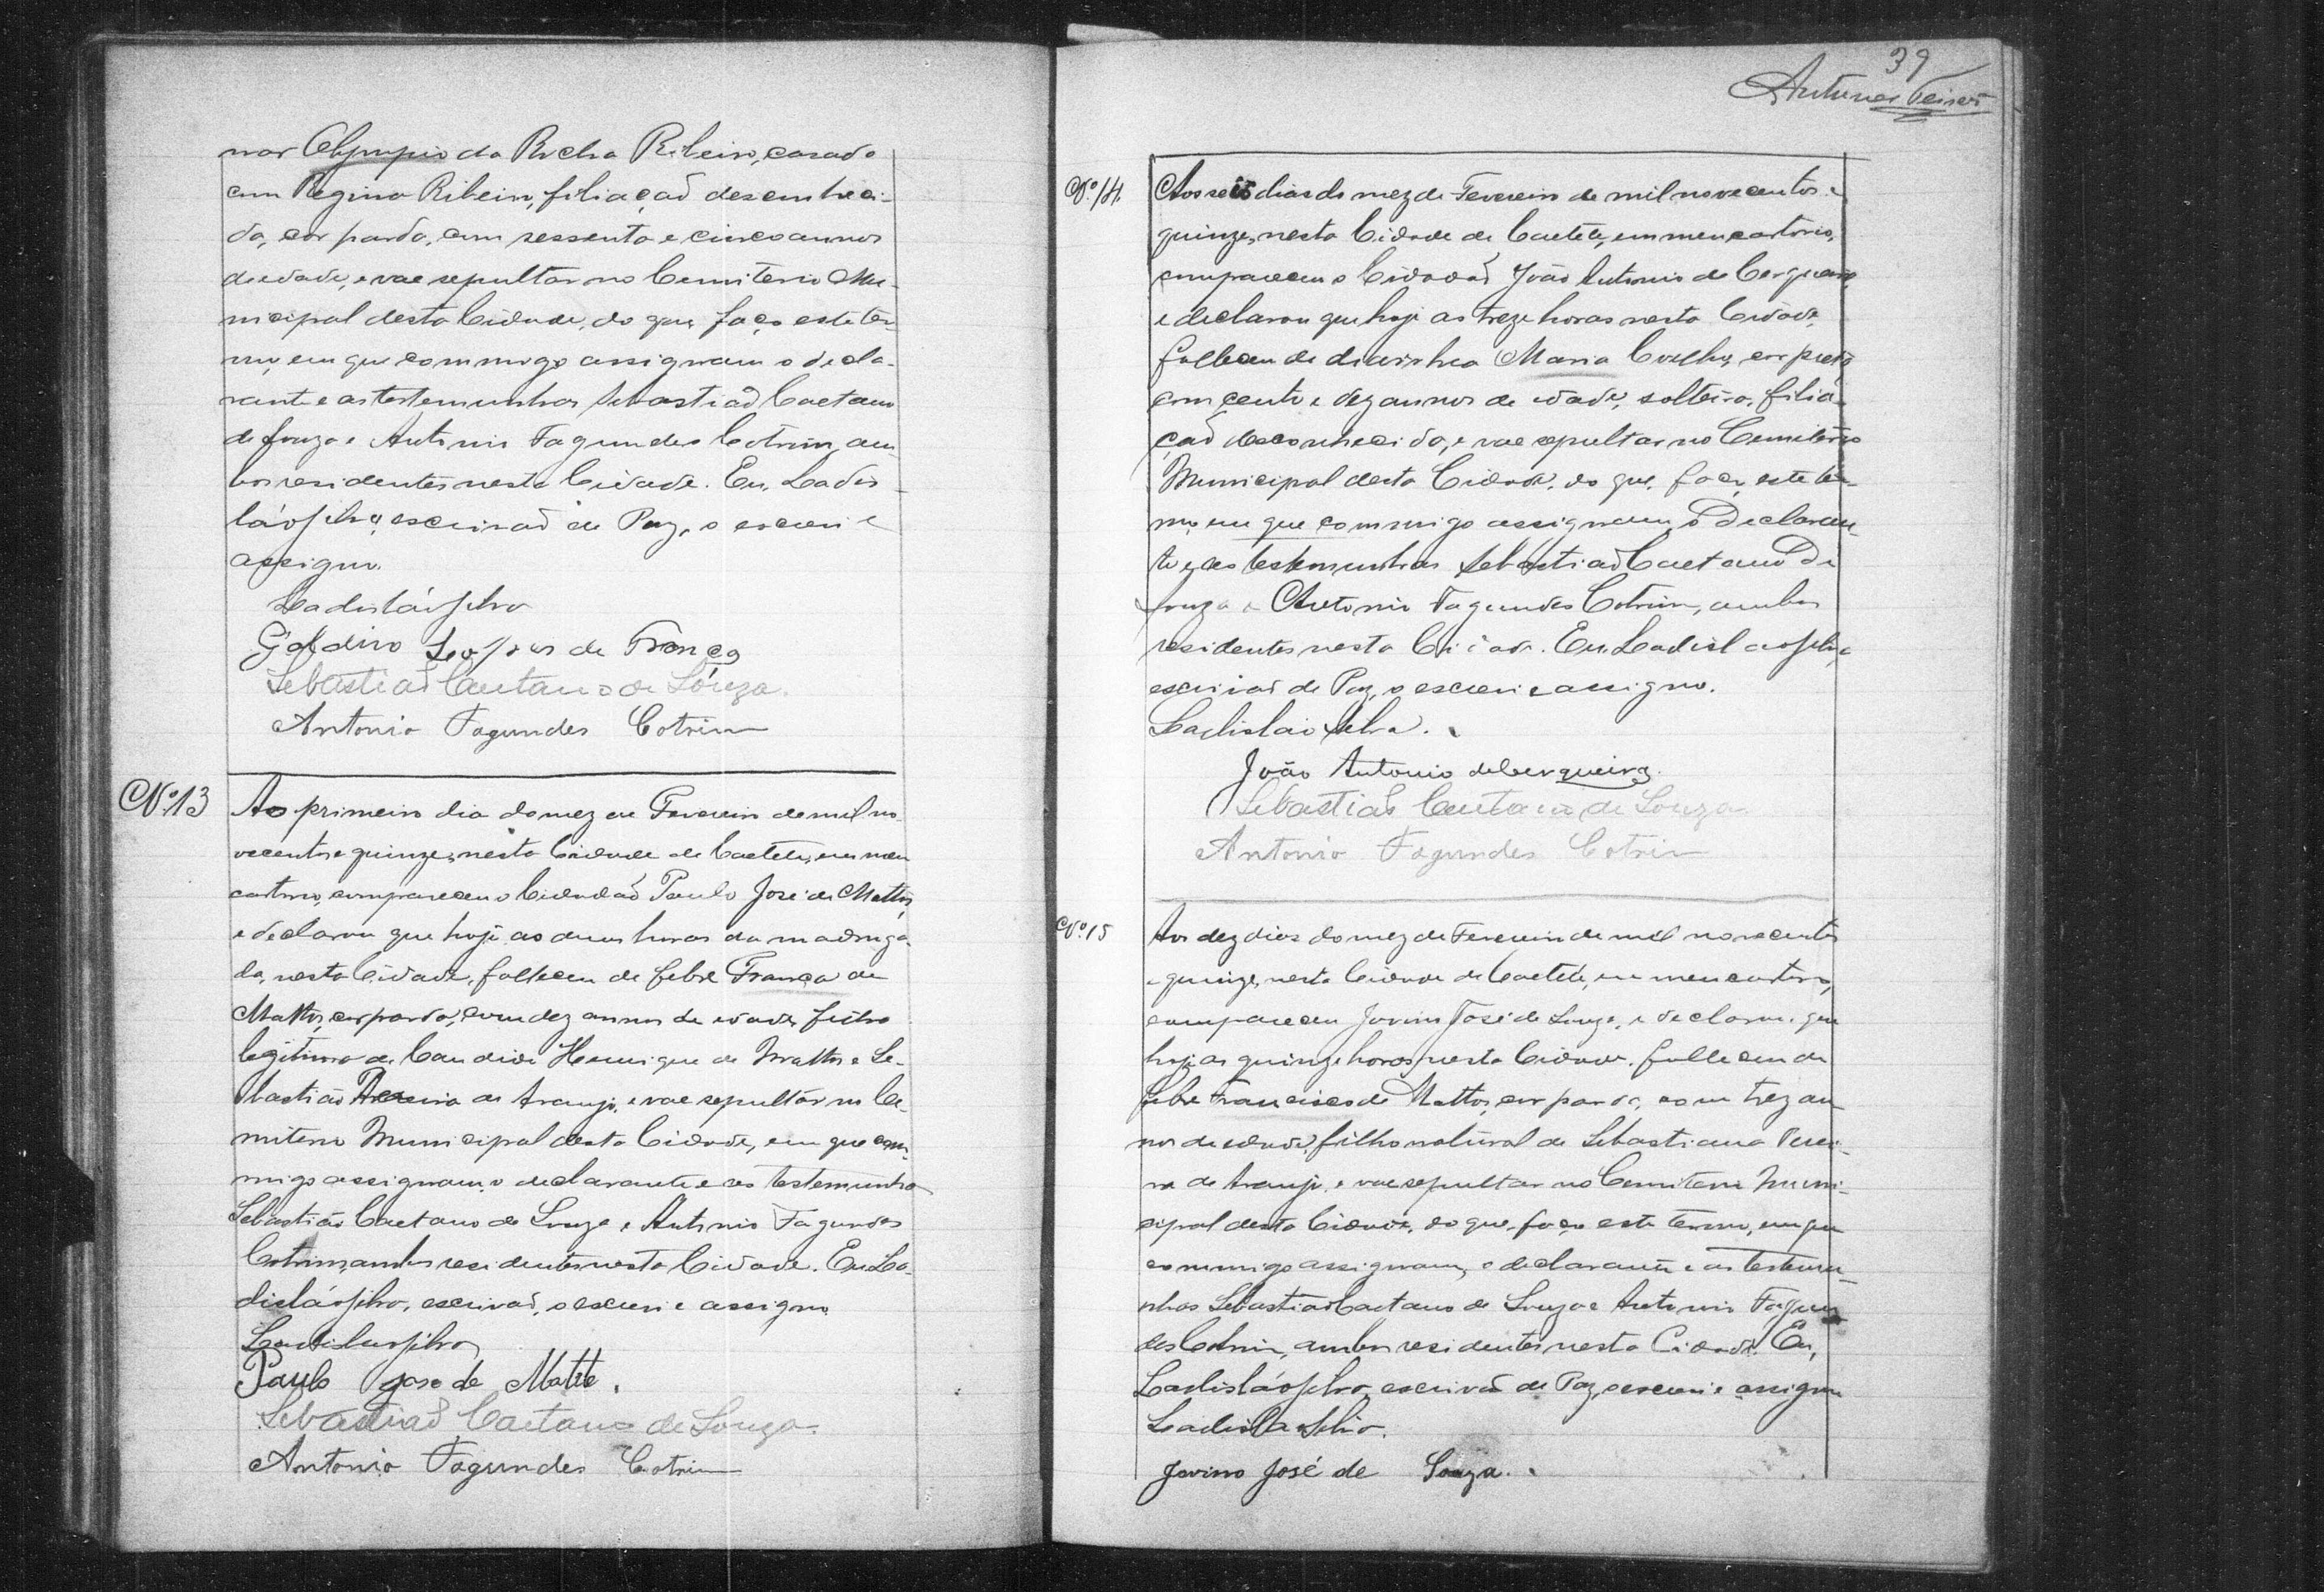 nar Olympio da Rocha Ribeiro, casado
com Regina Ribeiro, filiação desconheci-
da, cor parda, com sessenta e cinco annos
de edade, e vae sepultar no Cemiterio Mu-
nicipal desta Cidade, do que faço este ter-
mo, em que commigo assignam o decla-
rante e as testemunhas Sebastião Caetano
de Souza e Antonio Fagundes Cotrim, am-
bos residentes nesta Cidade. Eu, Ladis-
láo Silva, escrivão de Paz, o escrevi e
assigno.
Ladisláo Silva
Galdino de França
Sebastião Caetano de Souza.
Antonio Fagundes Cotrim
Nº 13
Ao primeiro dia do mez de Fevereiro de mil no-
vecentos e quinze, nesta Cidade de Caeteté, em meu
cartorio, compareceu o Cidadão Paulo José de Mattos,
e declarou que hoje as duas horas da madruga-
da, nesta Cidade, falleceu de febre França de
Mattos, cor parda, com dez annos de edade, filho
legitimo de Candido Henrique de Mattos e Se-
bastião Pereira de Araujo, e vae sepultar no Ce-
miterio Municipal desta Cidade, em que com-
migo assignam o declarante e as testemunhas
Sebastião Caetano de Souza e Antonio Fagundes
Cotrim, ambos residentes nesta Cidade. Eu La-
disláo Silva, escrivão, o escrevi e assigno.
Ladislao Silva
Paulo José de Matte.
Sebastião Caetano de Souza.
Antonio Fagundes Cotrim
39
Antunes
Nº 14.
Aos seis dias do mez de Fevereiro de mil novecentos e
quinze, nesta Cidade de Caeteté, em meu cartorio,
compareceu o Cidadão João Antonio de Cerqueira
e declarou que hoje as treze horas nesta Cidade,
falleceu de diarrhea Maria Coelho, cor preta
com cento e dez annos de edade, solteira, filia-
ção desconhecida, e vae sepultar no Cemiterio
Municipal desta Cidade, do que faço este ter-
mo, em que commigo assignam o Declaran-
te e as testemunhas Sebastião Caetano de
Souza e Antonio Fagundes Cotrim, ambos
residentes nesta Cidade. Eu Ladislao Silva,
escrivão de Paz, o escrevi e assigno.
Ladislao Silva.
João Antonio de Cerqueira.
Sebastião Caetano de Souza
Antonio Fagundes Cotrim
Nº 15
Aos dez dias do mez de Fevereiro de mil novecentos
e quinze, nesta Cidade de Caeteté, em meu cartorio,
compareceu Jovino José de Souza, e declarou que
hoje as quinze horas, nesta Cidade, falleceu de
febre Francisco de Mattos, cor parda, com trez an-
nos de edade, filho natural de Sebastiana Perei-
ra de Araujo, e vae sepultar no Cemiterio Muni-
cipal desta Cidade, do que faço este termo, em que
commigo assignam, o declarante e as testemu-
nhas Sebastião Caetano de Souza e Antonio Fagun-
des Cotrim, ambos residentes nesta Cidade. Eu,
Ladisláo Silva, escrivão de Paz, o escrevi e assigno
Ladisla Silva.
Jovino José de Souza.